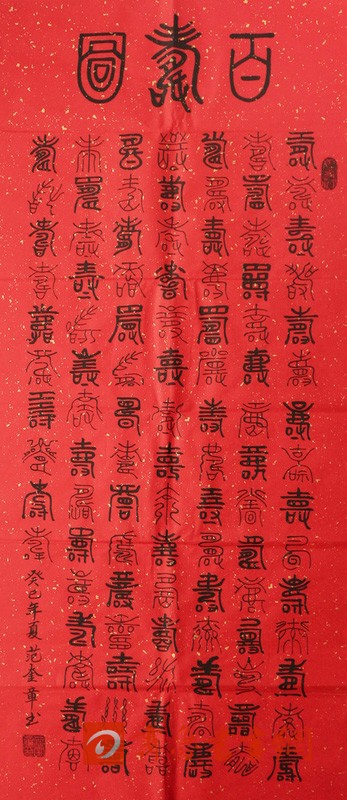 百壽圖
壽壽壽壽壽壽壽壽壽壽壽壽壽壽壽
壽壽壽壽壽壽壽壽壽壽壽壽壽壽壽
壽壽壽壽壽壽壽壽壽壽壽壽壽壽壽
壽壽壽壽壽壽壽壽壽壽壽壽壽壽壽
壽壽壽壽壽壽壽壽壽壽壽壽壽壽壽
壽壽壽壽壽壽壽壽壽壽壽壽壽壽壽
壽壽壽壽壽壽壽壽壽壽
癸巳年夏范奎章书